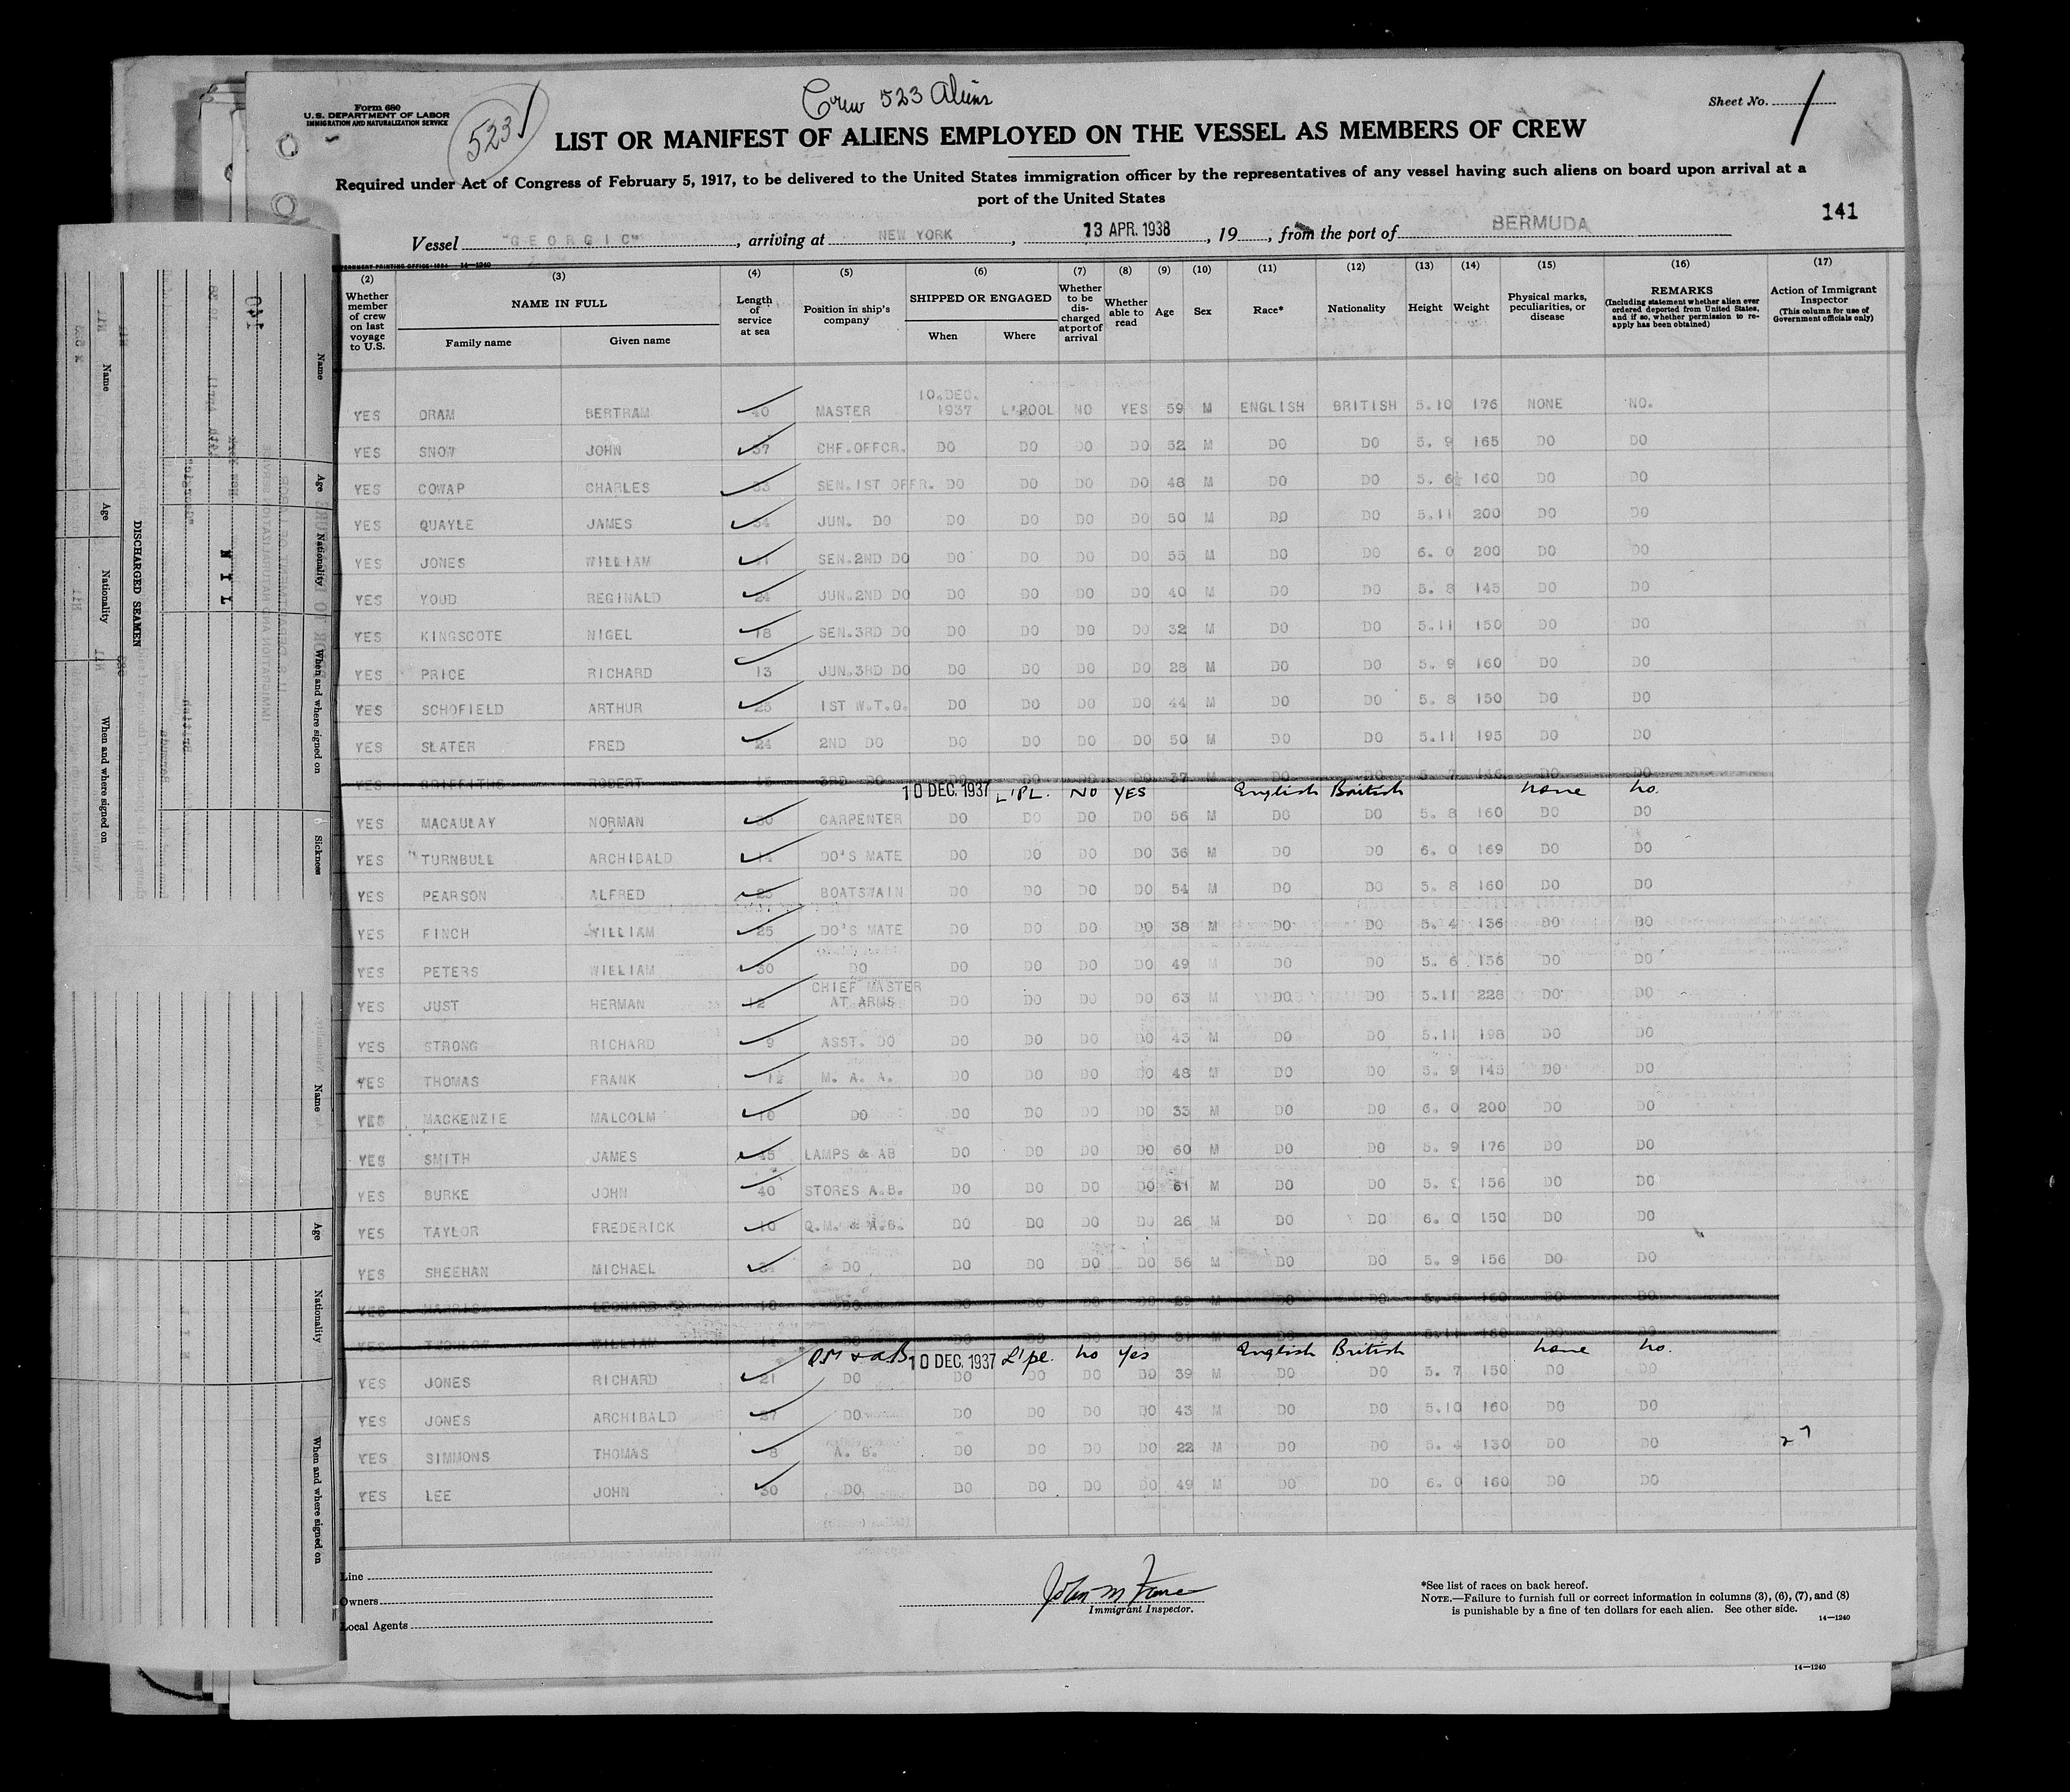 Crew 523 Aliens
Form 680
U.S. DEPARTMENT OF LABOR
IMMIGRATION AND NATURALIZATION SERVICE
523
Sheet No. 1
LIST OR MANIFEST OF ALIENS EMPLOYED ON THE VESSEL AS MEMBERS OF CREW
Required under Act of Congress of February 5, 1917, to be delivered to the United States immigration officer by the representatives of any vessel having such aliens on board upon arrival at a
port of the United States
141
Vessel "GEORGIC", arriving at NEW YORK, 13 APR. 1938, 19, from the port of BERMUDA
(2) (3) (4) (5) (6) (7) (8) (9) (10) (11) (12) (13) (14) (15) (16) (17)
Whether member of crew on last voyage to U.S.
NAME IN FULL
Family name
Given name
Length of service at sea
Position in ship's company
SHIPPED OR ENGAGED
When
Where
Whether to be discharged at port of arrival
Whether able to read
Age
Sex
Race*
Nationality
Height
Weight
Physical marks, peculiarities, or disease
REMARKS
(Including statement whether alien ever ordered deported from United States, and if so, whether permission to re-apply has been obtained)
Action of Immigrant Inspector
(This column for use of Government officials only)
YES DRAM BERTRAM 40 MASTER 10.DEC. 1937 L'POOL NO YES 59 M ENGLISH BRITISH 5.10 176 NONE NO.
YES SNOW JOHN 37 CHF.OFFCR. DO DO DO DO 52 M DO DO 5. 9 165 DO DO
YES COWAP CHARLES 33 SEN.1ST OFFR. DO DO DO DO 48 M DO DO 5. 6½ 160 DO DO
YES QUAYLE JAMES 34 JUN. DO DO DO DO DO 50 M DO DO 5.11 200 DO DO
YES JONES WILLIAM SEN.2ND DO DO DO DO DO 55 M DO DO 6. 0 200 DO DO
YES YOUD REGINALD 24 JUN.2ND DO DO DO DO DO 40 M DO DO 5. 8 145 DO DO
YES KINGSCOTE NIGEL 18 SEN.3RD DO DO DO DO DO 32 M DO DO 5.11 150 DO DO
YES PRICE RICHARD 13 JUN.3RD DO DO DO DO DO 28 M DO DO 5. 9 160 DO DO
YES SCHOFIELD ARTHUR 25 1ST W.T.O. DO DO DO DO 44 M DO DO 5. 8 150 DO DO
YES SLATER FRED 24 2ND DO DO DO DO DO 50 M DO DO 5.11 195 DO DO
YES GRIFFITHS ROBERT 3RD DO DO DO DO DO 37 M DO DO DO DO
10 DEC. 1937 L'PL. NO YES English British none no.
YES MACAULAY NORMAN 30 CARPENTER DO DO DO DO 56 M DO DO 5. 8 160 DO DO
YES TURNBULL ARCHIBALD 14 DO'S MATE DO DO DO DO 36 M DO DO 6. 0 169 DO DO
YES PEARSON ALFRED BOATSWAIN DO DO DO DO 54 M DO DO 5. 8 160 DO DO
YES FINCH WILLIAM 25 DO'S MATE DO DO DO DO 38 M DO DO 5. 4 136 DO DO
YES PETERS WILLIAM 30 DO DO DO DO DO 49 M DO DO 5. 6 156 DO DO
YES JUST HERMAN 12 CHIEF MASTER AT ARMS DO DO DO DO 63 M DO DO 5.11 228 DO DO
YES STRONG RICHARD 9 ASST. DO DO DO DO DO 43 M DO DO 5.11 198 DO DO
YES THOMAS FRANK 1½ M. A. A. DO DO DO DO 48 M DO DO 5. 9 145 DO DO
YES MACKENZIE MALCOLM 10 DO DO DO DO DO 33 M DO DO 6. 0 200 DO DO
YES SMITH JAMES 45 LAMPS & AB DO DO DO DO 60 M DO DO 5. 9 176 DO DO
YES BURKE JOHN 40 STORES A.B. DO DO DO DO 61 M DO DO 5. 9 156 DO DO
YES TAYLOR FREDERICK 10 Q.M. & A.B. DO DO DO DO 26 M DO DO 6. 0 150 DO DO
YES SHEEHAN MICHAEL DO DO DO DO DO 56 M DO DO 5. 9 156 DO DO
YES LEONARD 10 DO DO DO DO DO 29 M DO DO 160 DO DO
YES WILLIAM 14 DO DO DO DO DO 31 M DO DO 5.11 160 DO DO
QM & AB 10 DEC. 1937 L'pl. no yes English British none no.
YES JONES RICHARD 21 DO DO DO DO DO 39 M DO DO 5. 7 150 DO DO
YES JONES ARCHIBALD 27 DO DO DO DO DO 43 M DO DO 5.10 160 DO DO
YES SIMMONS THOMAS 8 A. B. DO DO DO DO 22 M DO DO 5. 4 130 DO DO 27
YES LEE JOHN 30 DO DO DO DO DO 49 M DO DO 6. 0 160 DO DO
Line
Owners
Local Agents
Immigrant Inspector.
*See list of races on back hereof.
NOTE.—Failure to furnish full or correct information in columns (3), (6), (7), and (8)
is punishable by a fine of ten dollars for each alien. See other side.
14—1240
14—1240
Name
Age
Nationality
When and where signed on
Sickness
DISCHARGED SEAMEN
Name
Age
Nationality
When and where signed on
NIL
140
Name
Age
Nationality
When and where signed on